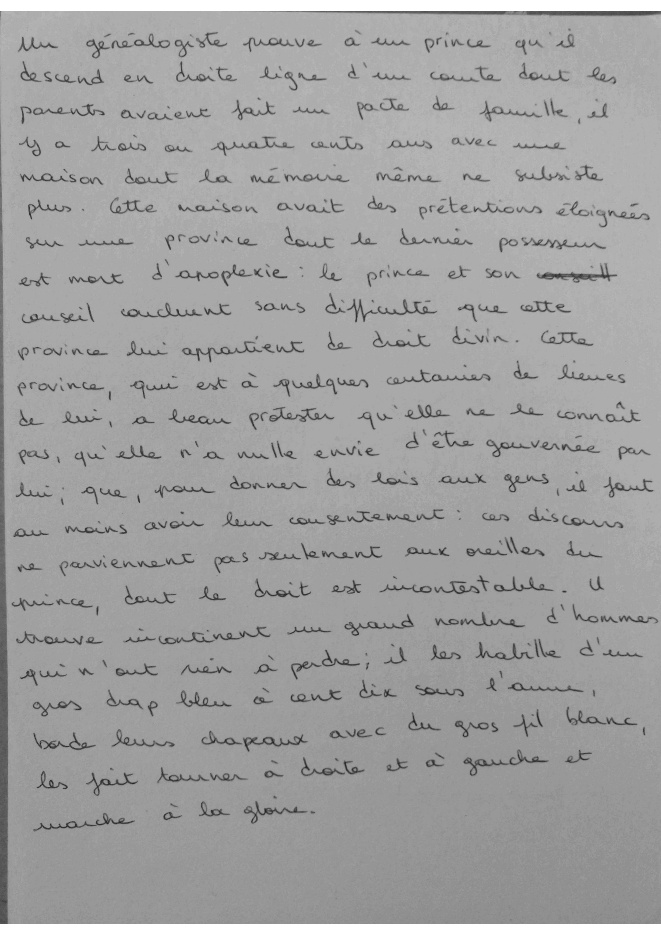 Un généalogiste prouve à un prince qu'il
descend en droite ligne d'un comte dont les
parents avaient fait un pacte de famille, il
y a trois ou quatre cents ans avec une
maison dont la mémoire même ne subsiste
plus. Cette maison avait des prétentions éloignées
sur une province dont le dernier possesseur
est mort d'apoplexie : le prince et son conseil
conseil concluent sans difficulté que cette
province lui appartient de droit divin. Cette
province, qui est à quelques centaines de lieues
de lui, a beau protester qu'elle ne le connaît
pas, qu'elle n'a nulle envie d'être gouvernée par
lui ; que, pour donner des lois aux gens, il faut
au moins avoir leur consentement : ces discours
ne parviennent pas seulement aux oreilles du
prince, dont le droit est incontestable. Il
trouve incontinent un grand nombre d'hommes
qui n'ont rien à perdre ; il les habille d'un
gros drap bleu à cent dix sous l'aune,
borde leurs chapeaux avec du gros fil blanc,
les fait tourner à droite et à gauche et
marche à la gloire.